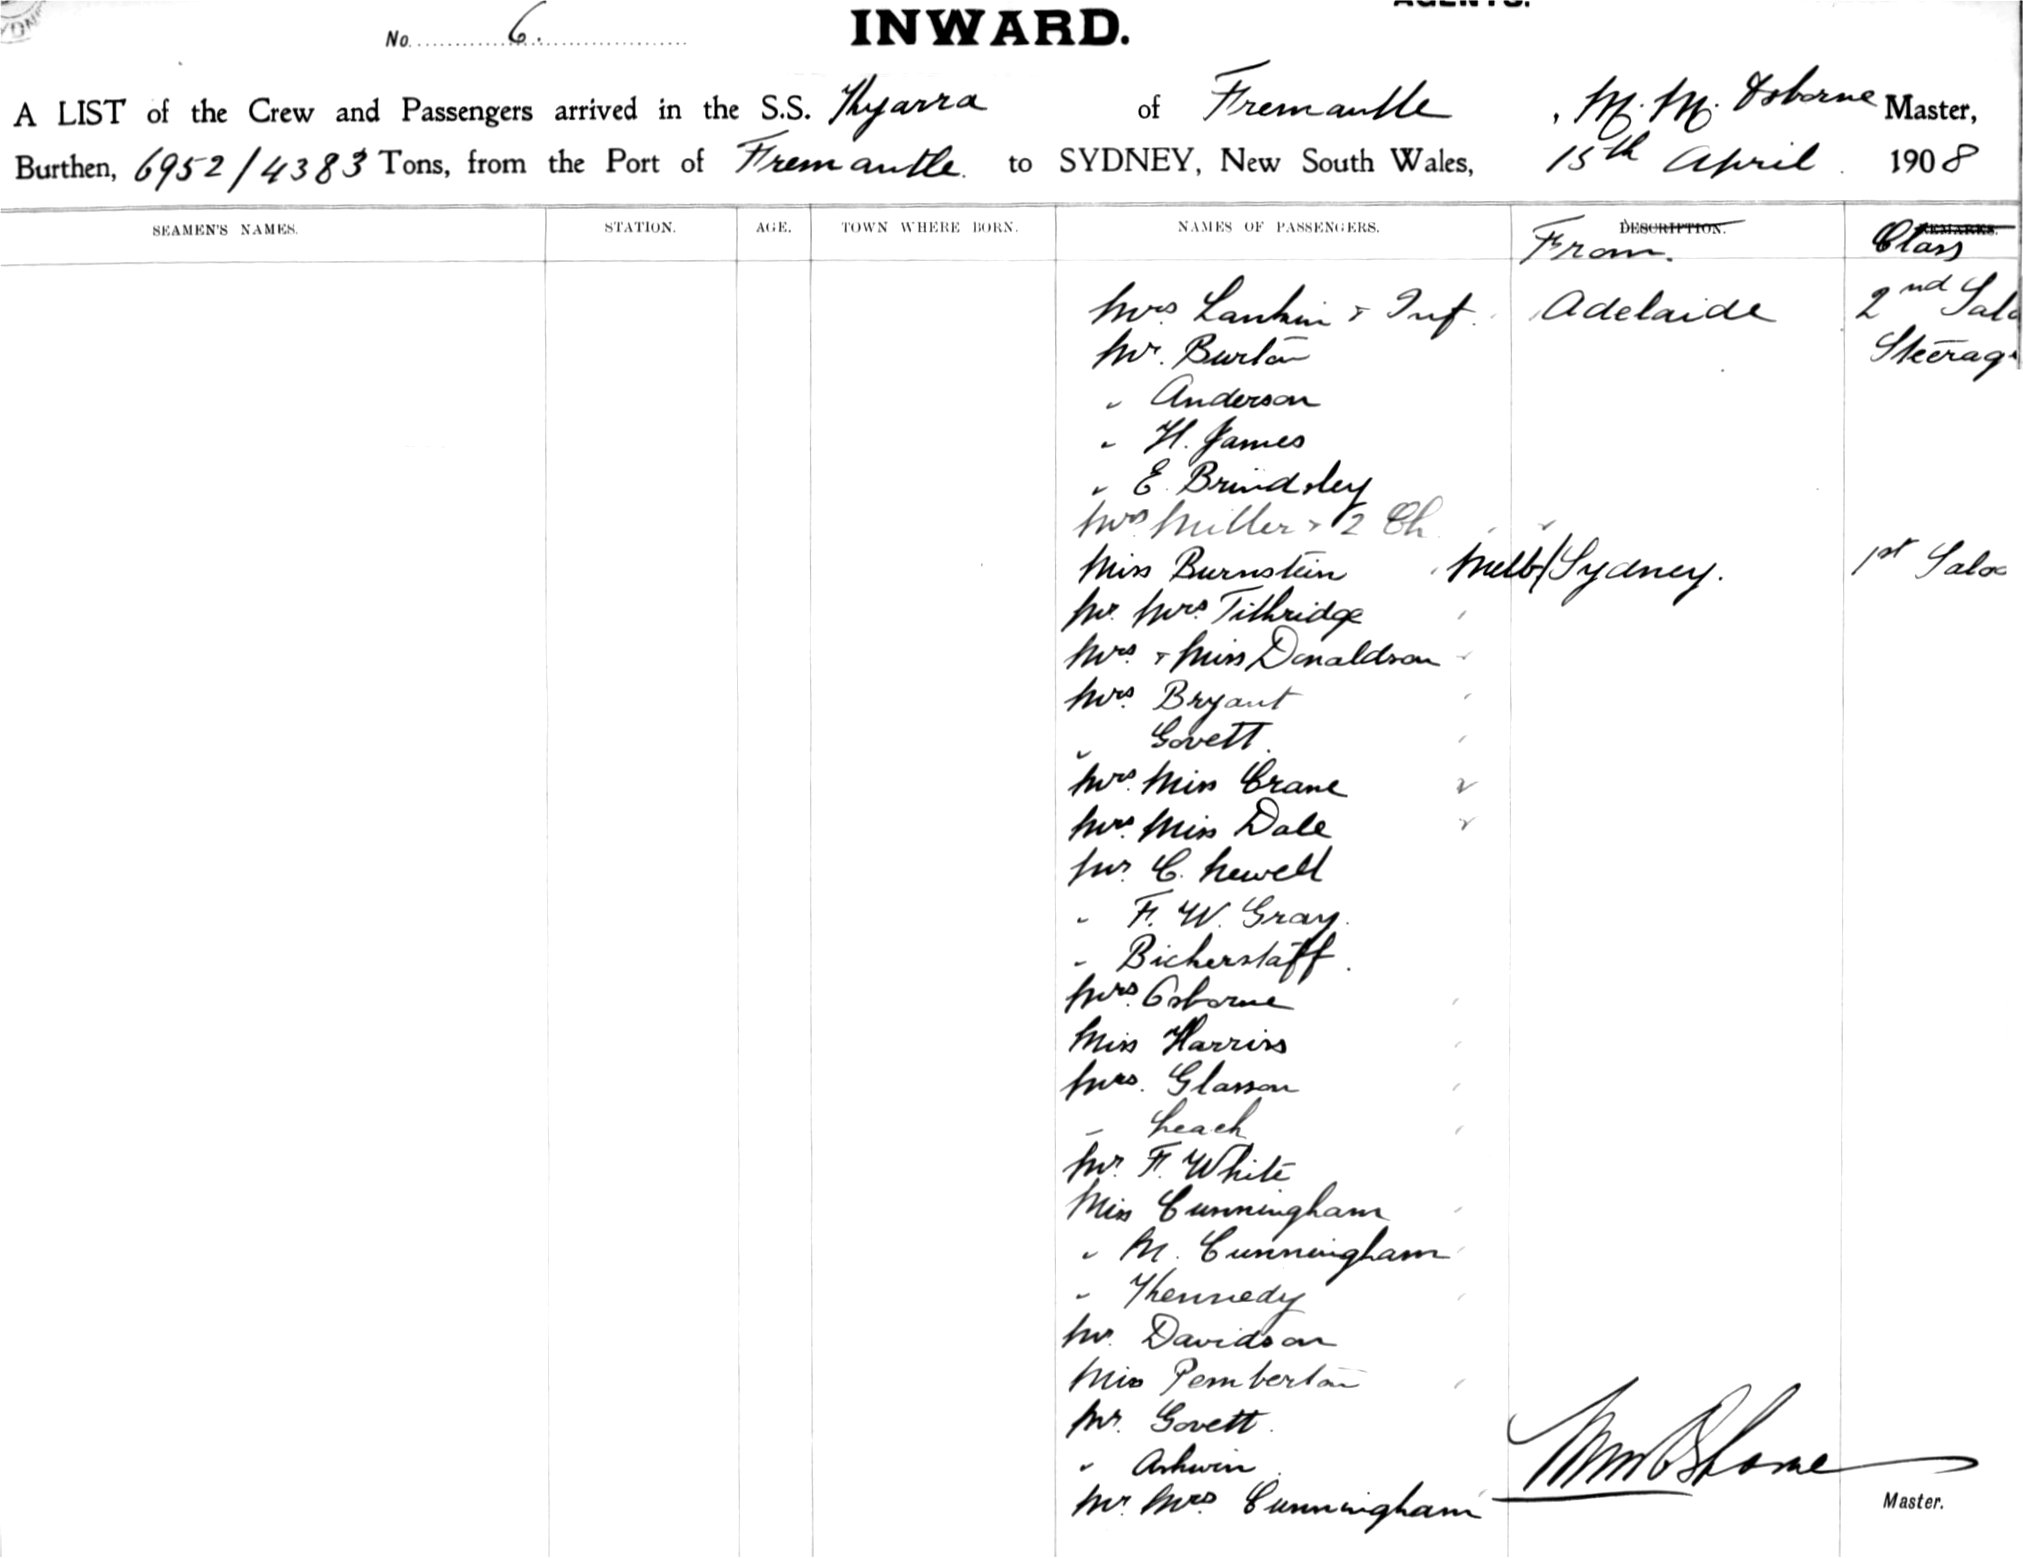 AGENTS.
No. 6.
INWARD.
A LIST of the Crew and Passengers arrived in the S.S. Kyarra of Fremantle, M. M. Osborne Master,
Burthen, 6952/4383 Tons, from the Port of Fremantle. to SYDNEY, New South Wales, 15th April 1908
SEAMEN'S NAMES. STATION. AGE. TOWN WHERE BORN. NAMES OF PASSENGERS. DESCRIPTION. REMARKS.
From. Class
Mrs Lankin + Inf. Adelaide 2nd Salo
Mr. Burton Steerag
" Anderson
" H. James
" E. Brindsley
Mrs Miller + 2 Ch
Miss Burnstein Melb/Sydney. 1st Saloo
Mr. Mrs. Tithridge
Mrs. + Miss Donaldson
Mrs. Bryant
" Govett.
Mrs. Miss Crane
Mrs. Miss Dale
Mr. C. Newell
" F. W. Gray.
" Bickerstaff.
Mrs. Osborne
Miss Harriss
Mrs. Glasson
" Leach
Mr. F. White
Miss Cunningham
" M. Cunningham
" Kennedy
Mr. Davidson
Miss Pemberton
Mr. Govett.
" Ashwin
Mr. Mrs Cunningham
Master.